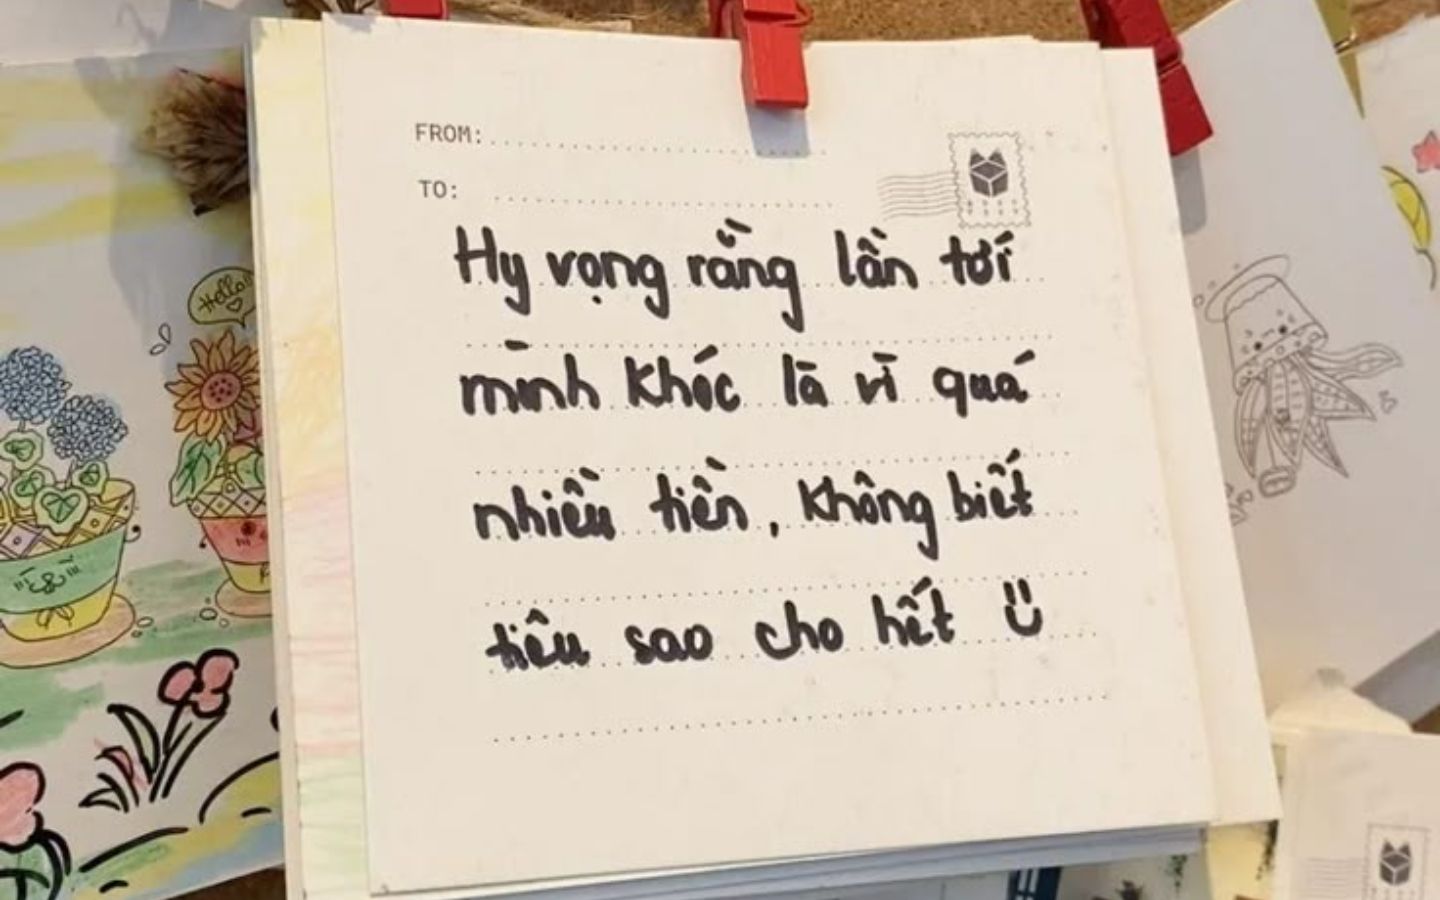 Hello!
FROM:
TO:
Hy vọng rằng lần tới
mình khóc là vì quá
nhiều tiền, không biết
tiêu sao cho hết